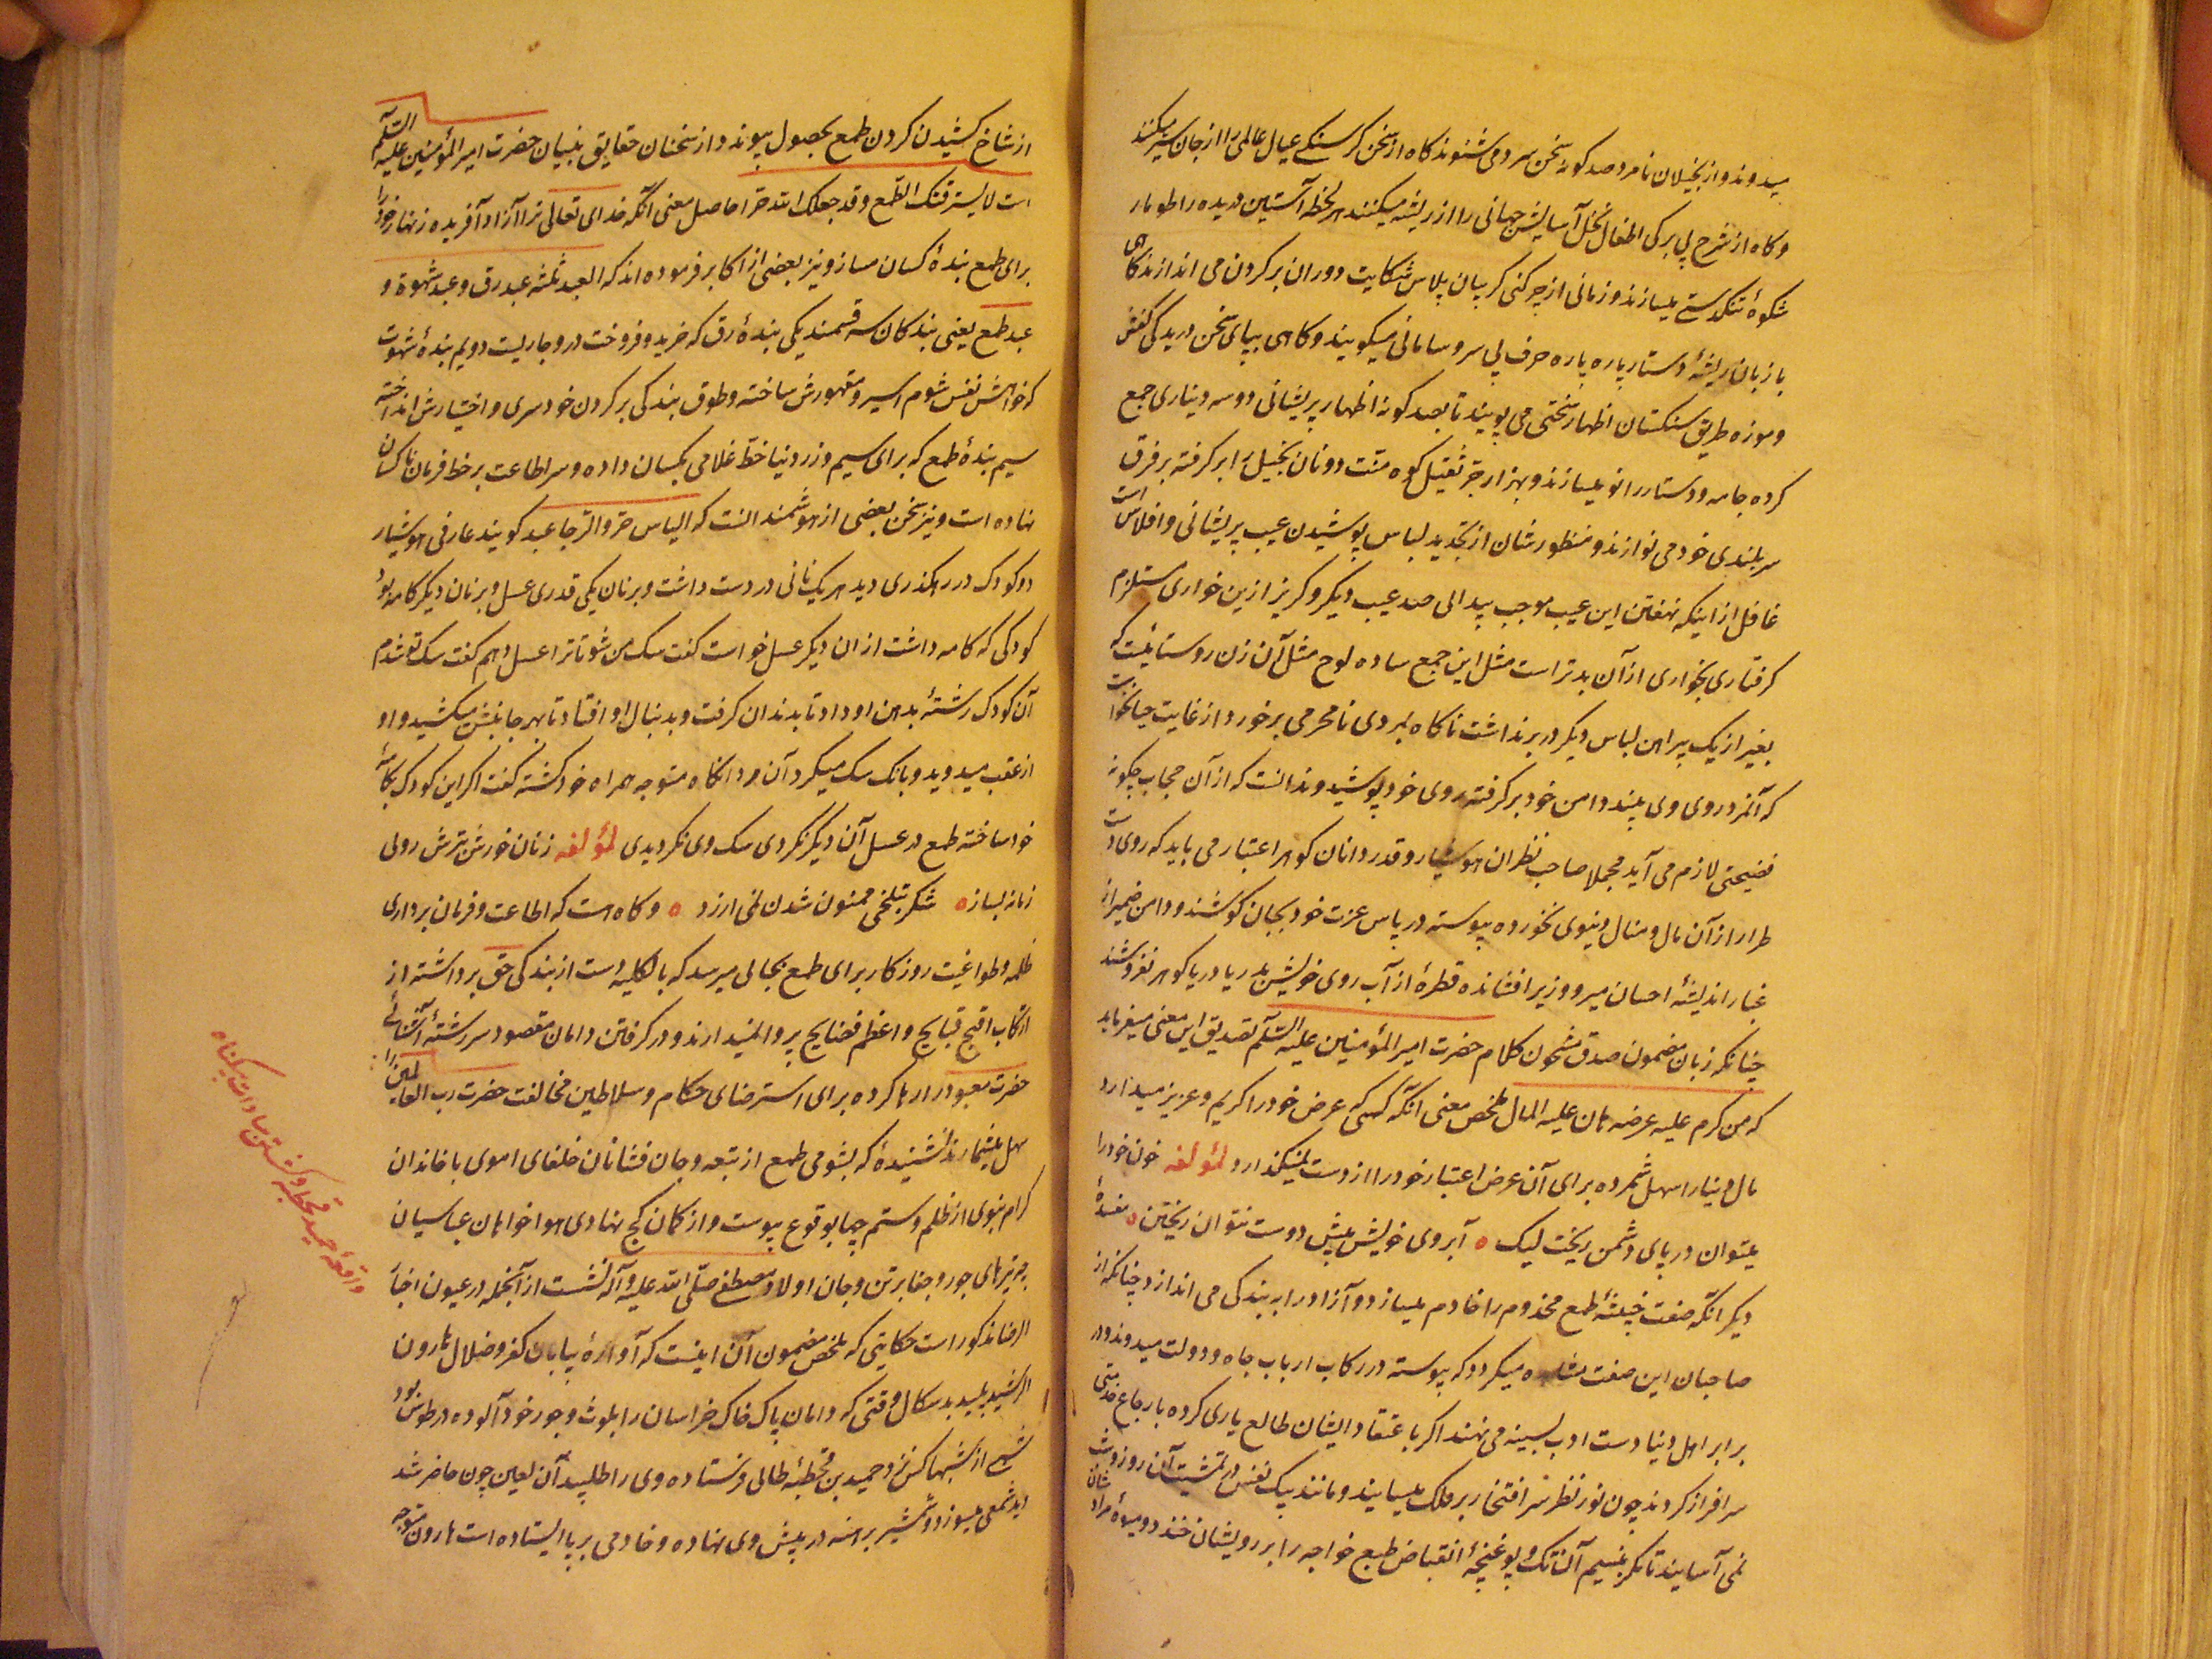 میدوند و از بخیلان نامرد صد گونه سخن سرد می شنوند گاه از سخن گرسنگی عیال عالمی را از جان سیر میکنند
و گاه از شرح بی برگی اطفال نخل آسایش جهانی را از ریشه میکنند هر لحظه آستین دریده را طومار
شکوهٔ تنگدستی میسازند و زمانی از چرکنی کریبان پلاس شکایت دوران بر کردن می اندازند کاهی
با زبان ریشهٔ دستار پاره پاره حرف بی سر و سامانی میکویند و کاهی بپای سخن دریدگی کفش
و موزه طریق سنکستان اظهار سختی می پویند تا بصد کونه اظهار پریشانی دو سه دیناری جمع
کرده جامه و دستار را نو میسازند و بهزار جر ثقیل کوه منت دو نان بخیل را بر کرفته بر فرق
سربلندی خود می نوازند و منظورشان از تجدید لباس پوشیدن عیب پریشانی و افلاس است
غافل از اینکه نهفتن این عیب موجب پیدائی صد عیب دیکر و کریز ازین خواری مستلزم
کرفتاری بخواری از آن بدتر است مثل این جمع ساده لوح مثل آن زن روستائیست که
بغیر از یک پیراهن لباس دیکر در بر نداشت ناکاه بمردی نامحرمی برخورد از غایت حیا نخواست
که آنمرد روی وی بیند دامن خود بر کرفته روی خود پوشید و ندانست که از آن حجاب چکونه
فضیحتی لازم می آید مجملا صاحب نظران هوشیار و قدردانان کوهر اعتبار می باید که روی دست
طرار از آن مال و منال دنیوی نخورده پیوسته در پاس عزت خود بجان کوشند و دامن ضمیر از
غبار اندیشهٔ احسان میر و وزیر افشانده قطرهٔ از آب روی خویش بدریا دریا کوهر نفروشند
چنانکه زبان مضمون صدق مشحون کلام حضرت امیر المؤمنین علیه السلام تصدیق این معنی میفرماید
که من کرم علیه عرضه هان علیه المال ملخص معنی آنکه کسی که عرض خود را کریم و عزیز میدارد
مال دنیا را سهل شمرده برای آن عرض اعتبار خود را از دست نمیکذارد لمؤلفه خون خود را
میتوان در پای دشمن ریخت لیک ٥ آبروی خویش پیش دوست نتوان ریختن ٥ مفسدهٔ
دیکر آنکه صفت خبیثهٔ طمع مخدوم را خادم میسازد و آزاد را به بندکی می اندازد چنانکه از
صاحبان این صفت مشاهده میکردد که پیوسته در رکاب ارباب جاه و دولت میدوند و در
برابر اهل دنیا دست ادب بسینه می نهند اکر باعتقاد ایشان طالع یاری کرده بارجاع خدمتی
سرافراز کردند چون نور نظر سر افتخار بر فلک میسایند و مانند پیک نفس در تمشیت آن روز و شب
نمی آسایند تا مکر بنسیم آن تک و پو غنچهٔ انقباض طبع خواجه را بر رویشان خندد و میوهٔ مرادشان
از شاخ کشیدن کردن طمع بحصول پیوندد و از سخنان حقایق بنیان حضرت امیر المؤمنین علیه السلام
است لا یسترقنک الطمع و قد جعلک الله حرا حاصل معنی آنکه خدای تعالی ترا آزاد آفریده زنهار خود را
برای طمع بندهٔ کسان مساز و نیز بعضی از اکابر فرموده اند که العبد ثلثه عبد رق و عبد شهوة و
عبد طمع یعنی بندکان سه قسمند یکی بندهٔ رق که خرید و فروخت در و جاریست دویم بندهٔ شهوت
که خواهش نفس شوم اسیر و مقهورش ساخته و طوق بندکی بر کردن خودسری و اختیارش انداخته
سیم بندهٔ طمع که برای سیم و زر دنیا خط غلامی بکسان داده و سر اطاعت بر خط فرمان ناکسان
نهاده است و نیز سخن بعضی از هوشمندانست که الیاس حر و الرجا عبد کویند عارفی هوشیار
دو کودک در رهکذری دید هر یک نانی در دست داشت و بر نان یکی قدری عسل و بر نان دیکر کامه بود
کودکی که کامه داشت از آن دیکر عسل خواست کفت سک من شو تا ترا عسل دهم کفت سک تو شدم
آن کودک رشتهٔ بدهن او داد تا بدندان کرفت و بدنبال او افتاد تا بهر جانبش میکشید و او
از عقب میدوید و بانک سک میکرد آن مرد آکاه متوجه همراه خود کشته کفت اکر این کودک بکامهٔ
خود ساخته طمع در عسل آن دیکر نکردی سک وی نکردیدی لمؤلفه ز نان خورش بترش رویی
زمانه بساز ٥ شکر بتلخی ممنون شدن نمی ارزد ٥ و کاه هست که اطاعت و فرمان برداری
ظلمه و طواغیت روزکار برای طمع بجایی میرسد که بالکلیه دست از بندکی حق برداشته از
ارتکاب اقبح قبایح و اعظم فضایح پروا نمیدارند و در کرفتن دامان مقصود سررشتهٔ آشنائی
حضرت معبود را رها کرده برای استرضای حکام و سلاطین مخالفت حضرت رب العالمین را
سهل میشمارند نشنیدهٔ که بشومی طمع از تبعه و جان فشانان خلفای اموی با خاندان
کرام نبوی از ظلم و ستم چها بوقوع پیوست و از کمان کج نهادی هواخواهان عباسیان
چه تیرهای جور و جفا بر تن و جان اولاد مصطفی صلی الله علیه و آله نشست از آنجمله در عیون اخبار
الرضا مذکور است حکایتی که ملخص مضمون آن اینست که آوارهٔ بیابان کفر و ضلال هارون
الرشید پلید بدسکال وقتی که دامان پاک خاک خراسان را بلوث وجود خود آلوده در طوس بود
شبی از شبها کس نزد حمید بن قحطبهٔ طائی فرستاده وی را طلبید آن لعین چون حاضر شد
دید شمعی میسوزد و شمشیر برهنه در پیش وی نهاده و خادمی بر پا ایستاده است هارون متوجه
واقعهٔ حمید قحطبه و کشتن سادات بیکناه